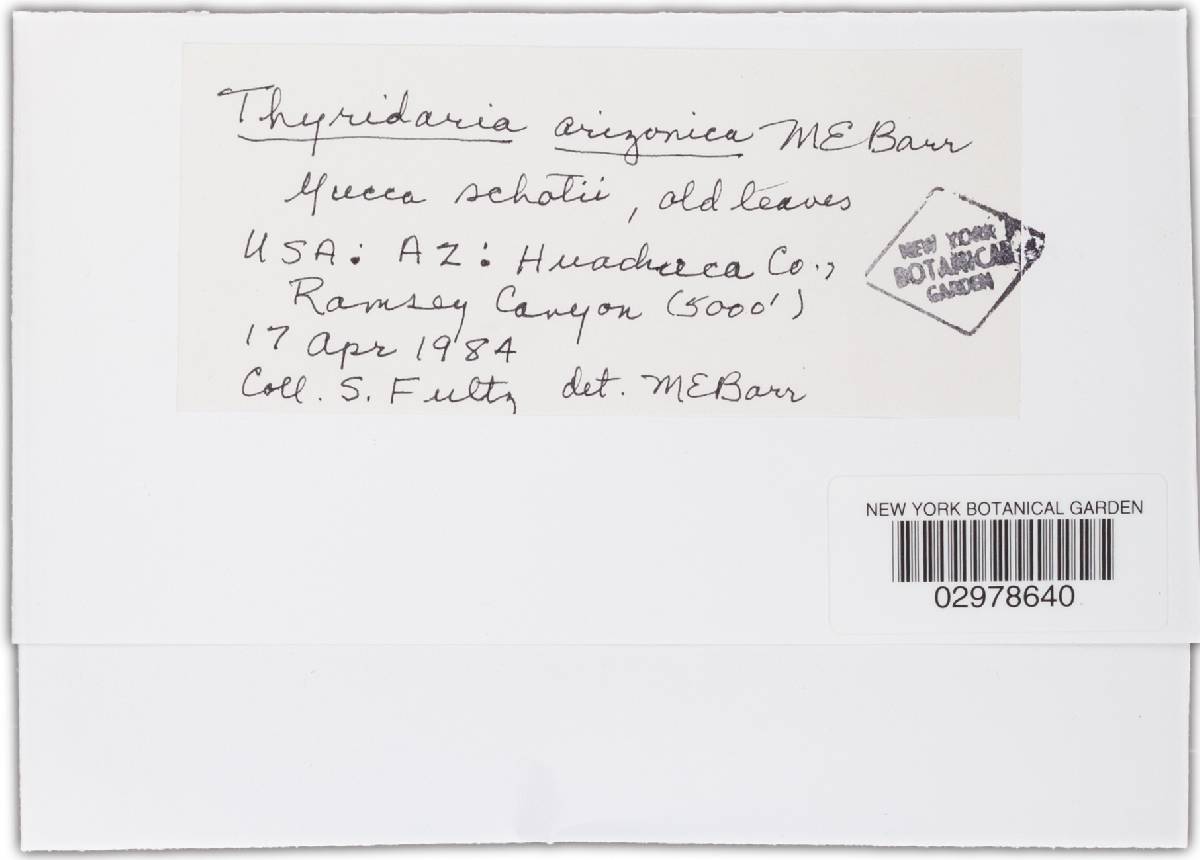 Thyridaria arizonica MEBarr
Yucca schotii, old leaves
USA: AZ: Huachuca Co.,
Ramsey Canyon (5000')
17 Apr 1984
Coll. S. Fultz det. MEBarr
NEW YORK
BOTANICAL
GARDEN
NEW YORK BOTANICAL GARDEN
02978640